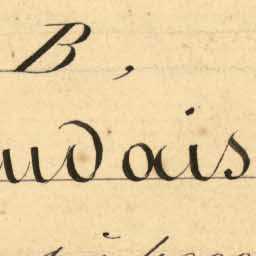 B,
udais